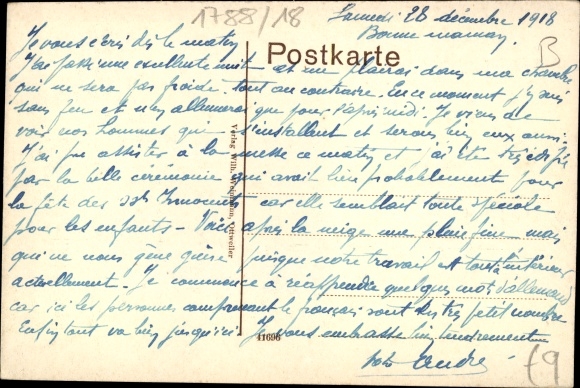 1788/18
Samedi 28 décembre 1918
Bonne maman,
B
Postkarte
Je vous écris dès le matin
J'ai passé une excellente nuit et me plairai dans ma chambre
qui ne sera pas froide. tout au contraire. En ce moment j'y suis
sans feu et n'en allumerai que pour l'après midi. Je viens de
voir nos hommes qui s'installent et seront bien eux aussi.
J'ai pu assister à la messe ce matin et j'ai été très édifié
par la belle cérémonie qui avait lieu probablement pour
la fête des Sts Innocents car elle semblait toute spéciale
pour les enfants - Voici après la neige une pluie fine mais
qui ne nous gêne guère puisque notre travail est tout à l'intérieur
actuellement. Je commence à réapprendre quelques mots d'allemand
car ici les personnes comprenant le français sont en très petit nombre
Enfin tout va bien jusqu'ici. Je vous embrasse bien tendrement
André
Verlag Wilh. Ottweiler
11696
f9